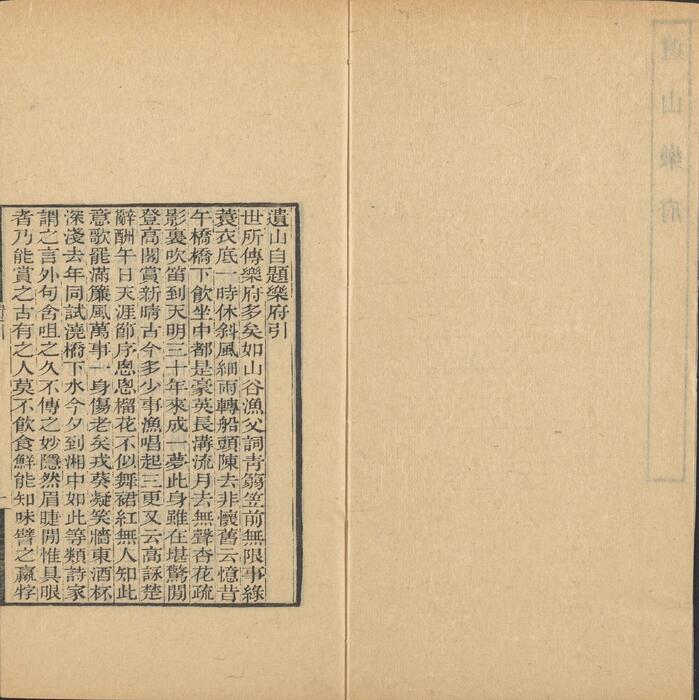 遺山樂府
遺山自題樂府引
世所傳樂府多矣如山谷漁父詞青篛笠前無限事綠
蓑衣底一時休斜風細雨轉船頭陳去非懷舊云憶昔
午橋橋下飲坐中都是豪英長溝流月去無聲杏花疏
影裏吹笛到天明三十年來成一夢此身雖在堪驚閒
登高閣賞新晴古今多少事漁唱起三更又云高詠楚
辭酬午日天涯節序悤悤榴花不似舞裙紅無人知此
意歌罷滿簾風萬事一身傷老矣戎葵凝笑牆東酒杯
深淺去年同試澆橋下水今夕到湘中如此等類詩家
謂之言外句含咀之久不傳之妙隱然眉睫閒惟具眼
者乃能賞之古有之人莫不飲食鮮能知味譬之羸牸